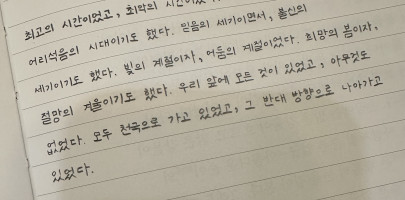 최고의 시간이었고, 최악의 시간이었
어리석음의 시대이기도 했다. 믿음의 세기이면서, 불신의
세기이기도 했다. 빛의 계절이자, 어둠의 계절이었다. 희망의 봄이자,
절망의 겨울이기도 했다. 우리 앞에 모든 것이 있었고, 아무것도
없었다. 모두 천국으로 가고 있었고, 그 반대 방향으로 나아가고
있었다.